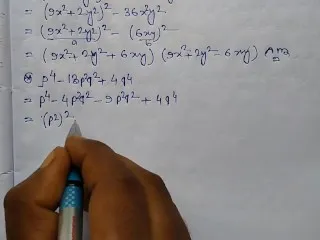 = (9x²+2y²)² - 36x²y²
= (9x²+2y²)² - (6xy)²
a b
= (9x²+2y²+6xy) (9x²+2y²-6xy) Ans
p⁴-13p²q²+4q⁴
= p⁴-4p²q²-9p²q²+4q⁴
= (p²)²